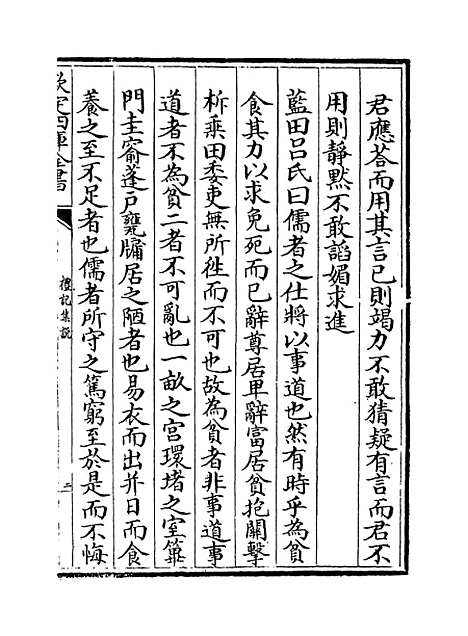 君應荅而用其言已則竭力不敢猜疑有言而君不
用則靜默不敢謟媚求進
藍田吕氏曰儒者之仕將以事道也然有時乎為貧
食其力以求免死而已辭尊居卑辭富居貧抱關擊
柝乘田委吏無所徃而不可也故為貧者非事道事
道者不為貧二者不可亂也一畝之宫環堵之室篳
門圭窬蓬戸甕牖居之陋者也易衣而出并日而食
養之至不足者也儒者所守之篤窮至於是而不悔
欽定四庫全書
禮記集説
三